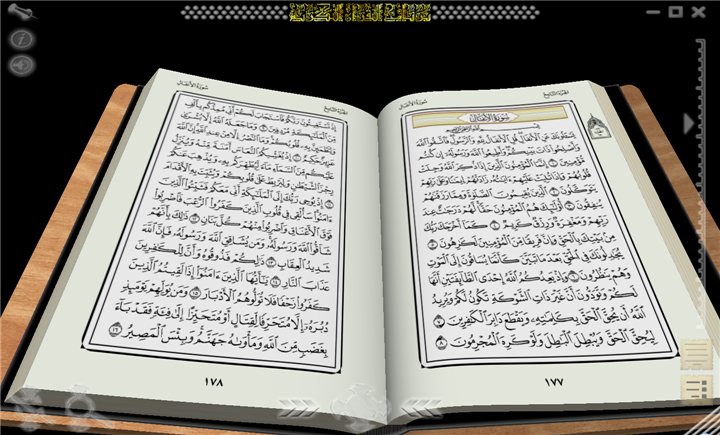 سُورَةُ الأَنْفَالِ
الجُزْءُ التَّاسِعُ
سُورَةُ الأَنْفَالِ
بِسْمِ ٱللَّهِ ٱلرَّحْمَٰنِ ٱلرَّحِيمِ
يَسْـَٔلُونَكَ عَنِ ٱلْأَنفَالِ قُلِ ٱلْأَنفَالُ لِلَّهِ وَٱلرَّسُولِ فَٱتَّقُوا۟ ٱللَّهَ
وَأَصْلِحُوا۟ ذَاتَ بَيْنِكُمْ وَأَطِيعُوا۟ ٱللَّهَ وَرَسُولَهُۥٓ إِن كُنتُم
مُّؤْمِنِينَ ١ إِنَّمَا ٱلْمُؤْمِنُونَ ٱلَّذِينَ إِذَا ذُكِرَ ٱللَّهُ وَجِلَتْ
قُلُوبُهُمْ وَإِذَا تُلِيَتْ عَلَيْهِمْ ءَايَٰتُهُۥ زَادَتْهُمْ إِيمَٰنًا وَعَلَىٰ رَبِّهِمْ
يَتَوَكَّلُونَ ٢ ٱلَّذِينَ يُقِيمُونَ ٱلصَّلَوٰةَ وَمِمَّا رَزَقْنَٰهُمْ
يُنفِقُونَ ٣ أُو۟لَٰٓئِكَ هُمُ ٱلْمُؤْمِنُونَ حَقًّا لَّهُمْ دَرَجَٰتٌ عِندَ
رَبِّهِمْ وَمَغْفِرَةٌ وَرِزْقٌ كَرِيمٌ ٤ كَمَآ أَخْرَجَكَ رَبُّكَ
مِنۢ بَيْتِكَ بِٱلْحَقِّ وَإِنَّ فَرِيقًا مِّنَ ٱلْمُؤْمِنِينَ لَكَٰرِهُونَ ٥
يُجَٰدِلُونَكَ فِى ٱلْحَقِّ بَعْدَ مَا تَبَيَّنَ كَأَنَّمَا يُسَاقُونَ إِلَى ٱلْمَوْتِ
وَهُمْ يَنظُرُونَ ٦ وَإِذْ يَعِدُكُمُ ٱللَّهُ إِحْدَى ٱلطَّآئِفَتَيْنِ أَنَّهَا
لَكُمْ وَتَوَدُّونَ أَنَّ غَيْرَ ذَاتِ ٱلشَّوْكَةِ تَكُونُ لَكُمْ وَيُرِيدُ
ٱللَّهُ أَن يُحِقَّ ٱلْحَقَّ بِكَلِمَٰتِهِۦ وَيَقْطَعَ دَابِرَ ٱلْكَٰفِرِينَ ٧
لِيُحِقَّ ٱلْحَقَّ وَيُبْطِلَ ٱلْبَٰطِلَ وَلَوْ كَرِهَ ٱلْمُجْرِمُونَ ٨
١٧٧
الجُزْءُ التَّاسِعُ
سُورَةُ الأَنْفَالِ
إِذْ تَسْتَغِيثُونَ رَبَّكُمْ فَٱسْتَجَابَ لَكُمْ أَنِّى مُمِدُّكُم بِأَلْفٍ
مِّنَ ٱلْمَلَٰٓئِكَةِ مُرْدِفِينَ ٩ وَمَا جَعَلَهُ ٱللَّهُ إِلَّا بُشْرَىٰ
وَلِتَطْمَئِنَّ بِهِۦ قُلُوبُكُمْ وَمَا ٱلنَّصْرُ إِلَّا مِنْ عِندِ ٱللَّهِ إِنَّ ٱللَّهَ
عَزِيزٌ حَكِيمٌ ١٠ إِذْ يُغَشِّيكُمُ ٱلنُّعَاسَ أَمَنَةً مِّنْهُ وَيُنَزِّلُ
عَلَيْكُم مِّنَ ٱلسَّمَآءِ مَآءً لِّيُطَهِّرَكُم بِهِۦ وَيُذْهِبَ عَنكُمْ
رِجْزَ ٱلشَّيْطَٰنِ وَلِيَرْبِطَ عَلَىٰ قُلُوبِكُمْ وَيُثَبِّتَ بِهِ ٱلْأَقْدَامَ
١١ إِذْ يُوحِى رَبُّكَ إِلَى ٱلْمَلَٰٓئِكَةِ أَنِّى مَعَكُمْ فَثَبِّتُوا۟ ٱلَّذِينَ
ءَامَنُوا۟ سَأُلْقِى فِى قُلُوبِ ٱلَّذِينَ كَفَرُوا۟ ٱلرُّعْبَ فَٱضْرِبُوا۟
فَوْقَ ٱلْأَعْنَاقِ وَٱضْرِبُوا۟ مِنْهُمْ كُلَّ بَنَانٍ ١٢ ذَٰلِكَ بِأَنَّهُمْ
شَآقُّوا۟ ٱللَّهَ وَرَسُولَهُۥ وَمَن يُشَاقِقِ ٱللَّهَ وَرَسُولَهُۥ فَإِنَّ ٱللَّهَ
شَدِيدُ ٱلْعِقَابِ ١٣ ذَٰلِكُمْ فَذُوقُوهُ وَأَنَّ لِلْكَٰفِرِينَ
عَذَابَ ٱلنَّارِ ١٤ يَٰٓأَيُّهَا ٱلَّذِينَ ءَامَنُوٓا۟ إِذَا لَقِيتُمُ ٱلَّذِينَ
كَفَرُوا۟ زَحْفًا فَلَا تُوَلُّوهُمُ ٱلْأَدْبَارَ ١٥ وَمَن يُوَلِّهِمْ يَوْمَئِذٍ
دُبُرَهُۥٓ إِلَّا مُتَحَرِّفًا لِّقِتَالٍ أَوْ مُتَحَيِّزًا إِلَىٰ فِئَةٍ فَقَدْ بَآءَ
بِغَضَبٍ مِّنَ ٱللَّهِ وَمَأْوَىٰهُ جَهَنَّمُ وَبِئْسَ ٱلْمَصِيرُ ١٦
١٧٨